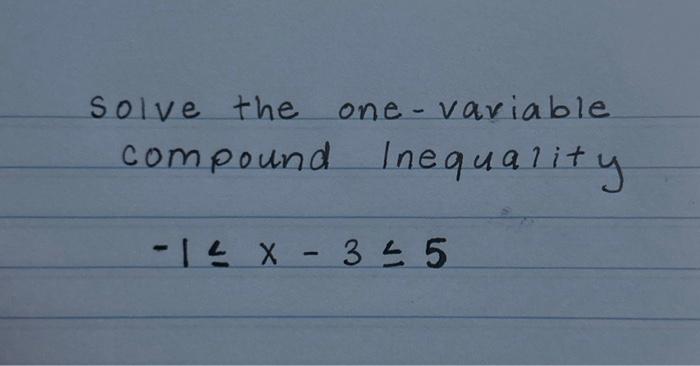 solve the one-variable
compound Inequality
-1 ≤ x - 3 ≤ 5